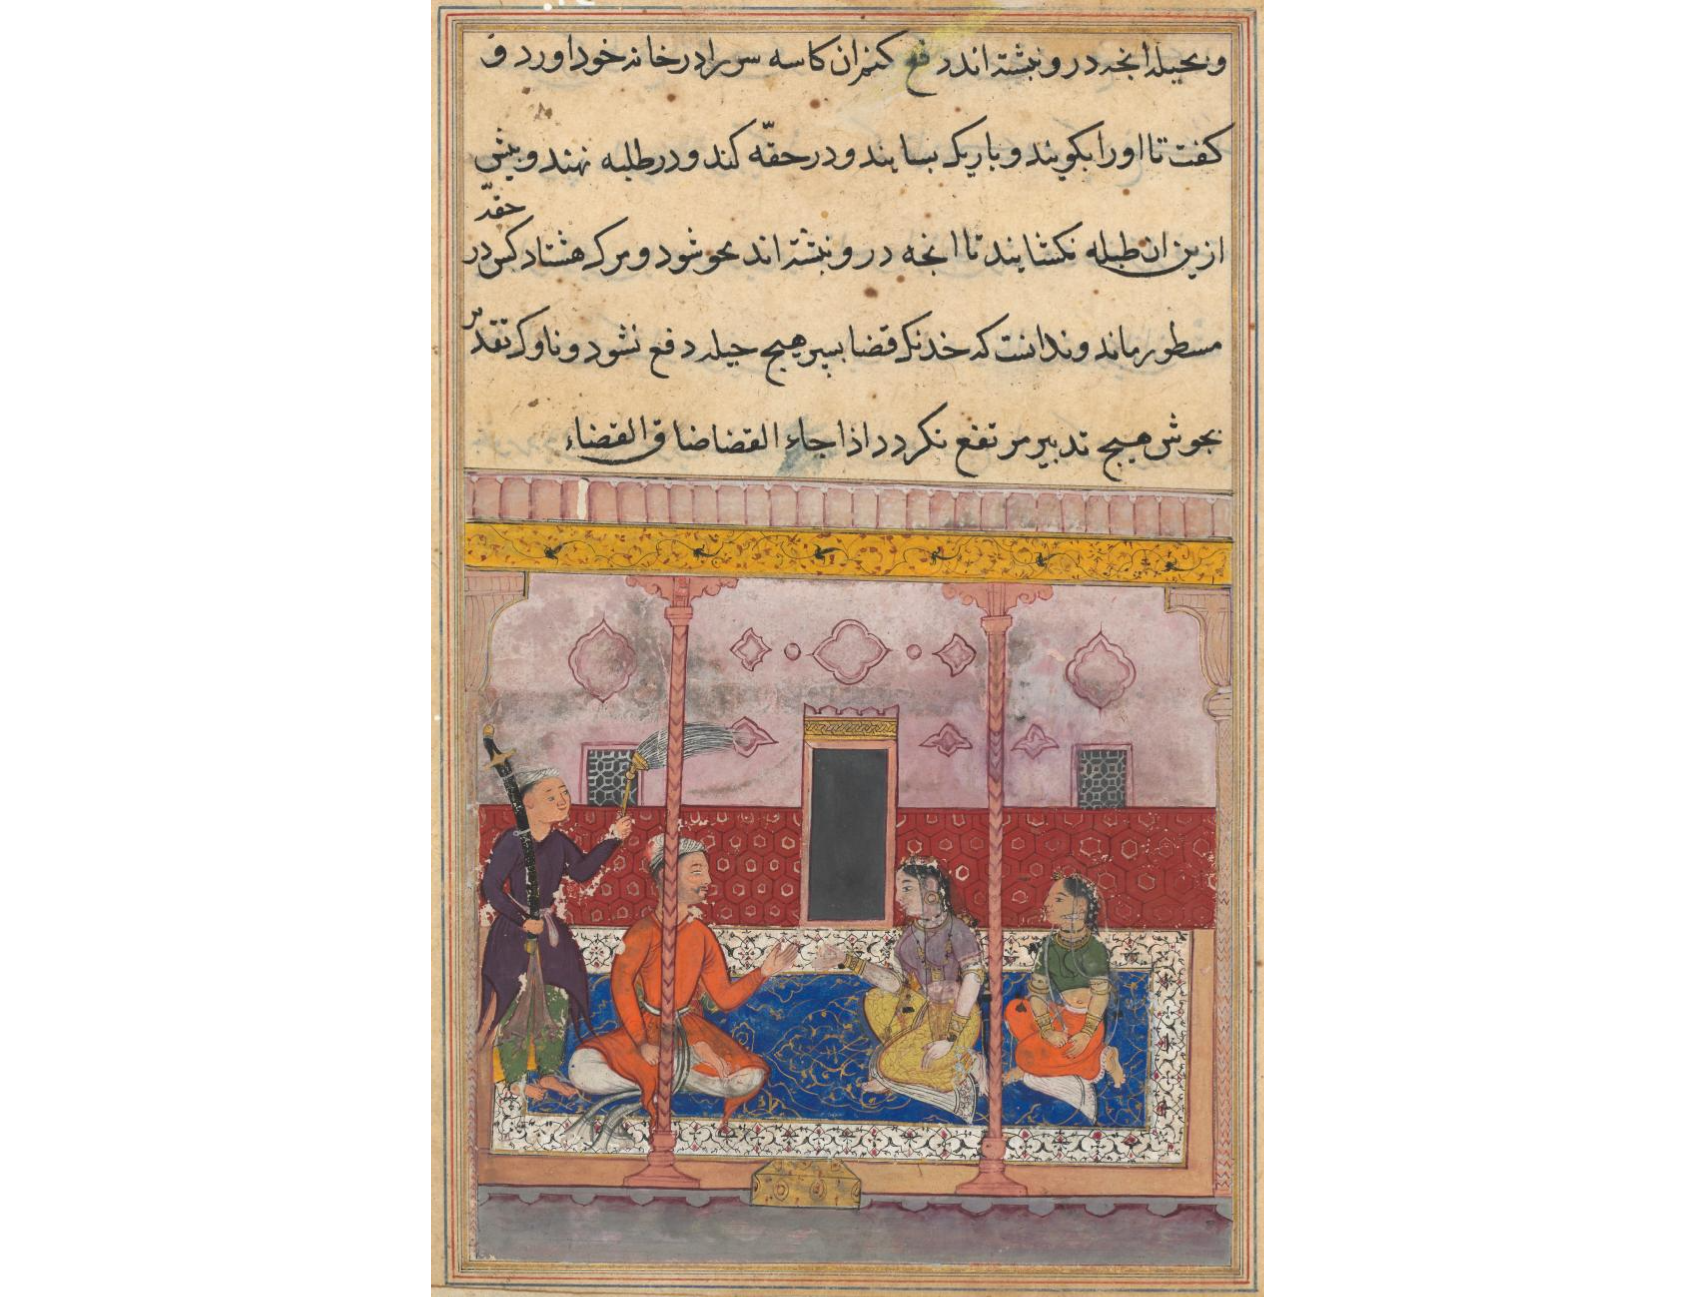 و بحیلد انجه درو نبشته اند دفع کنم ان کاسه سر را در خانه خود اورد و
کفت تا او را بکویند و باریک بسایند و در حقّه کند و در طلبه نهند و پیش
ازین ان طبله نکشایند تا انجه درو نبشته اند محو شود و مرک هشتاد کس در حقّه
مسطور ماند و ندانست که خدنک قضا بسپر هیچ حیله دفع نشود و ناوک تقدیر
بجوش هیچ تدبیر مرتفع نکردد اذا جاء القضا ضاق الفضاء